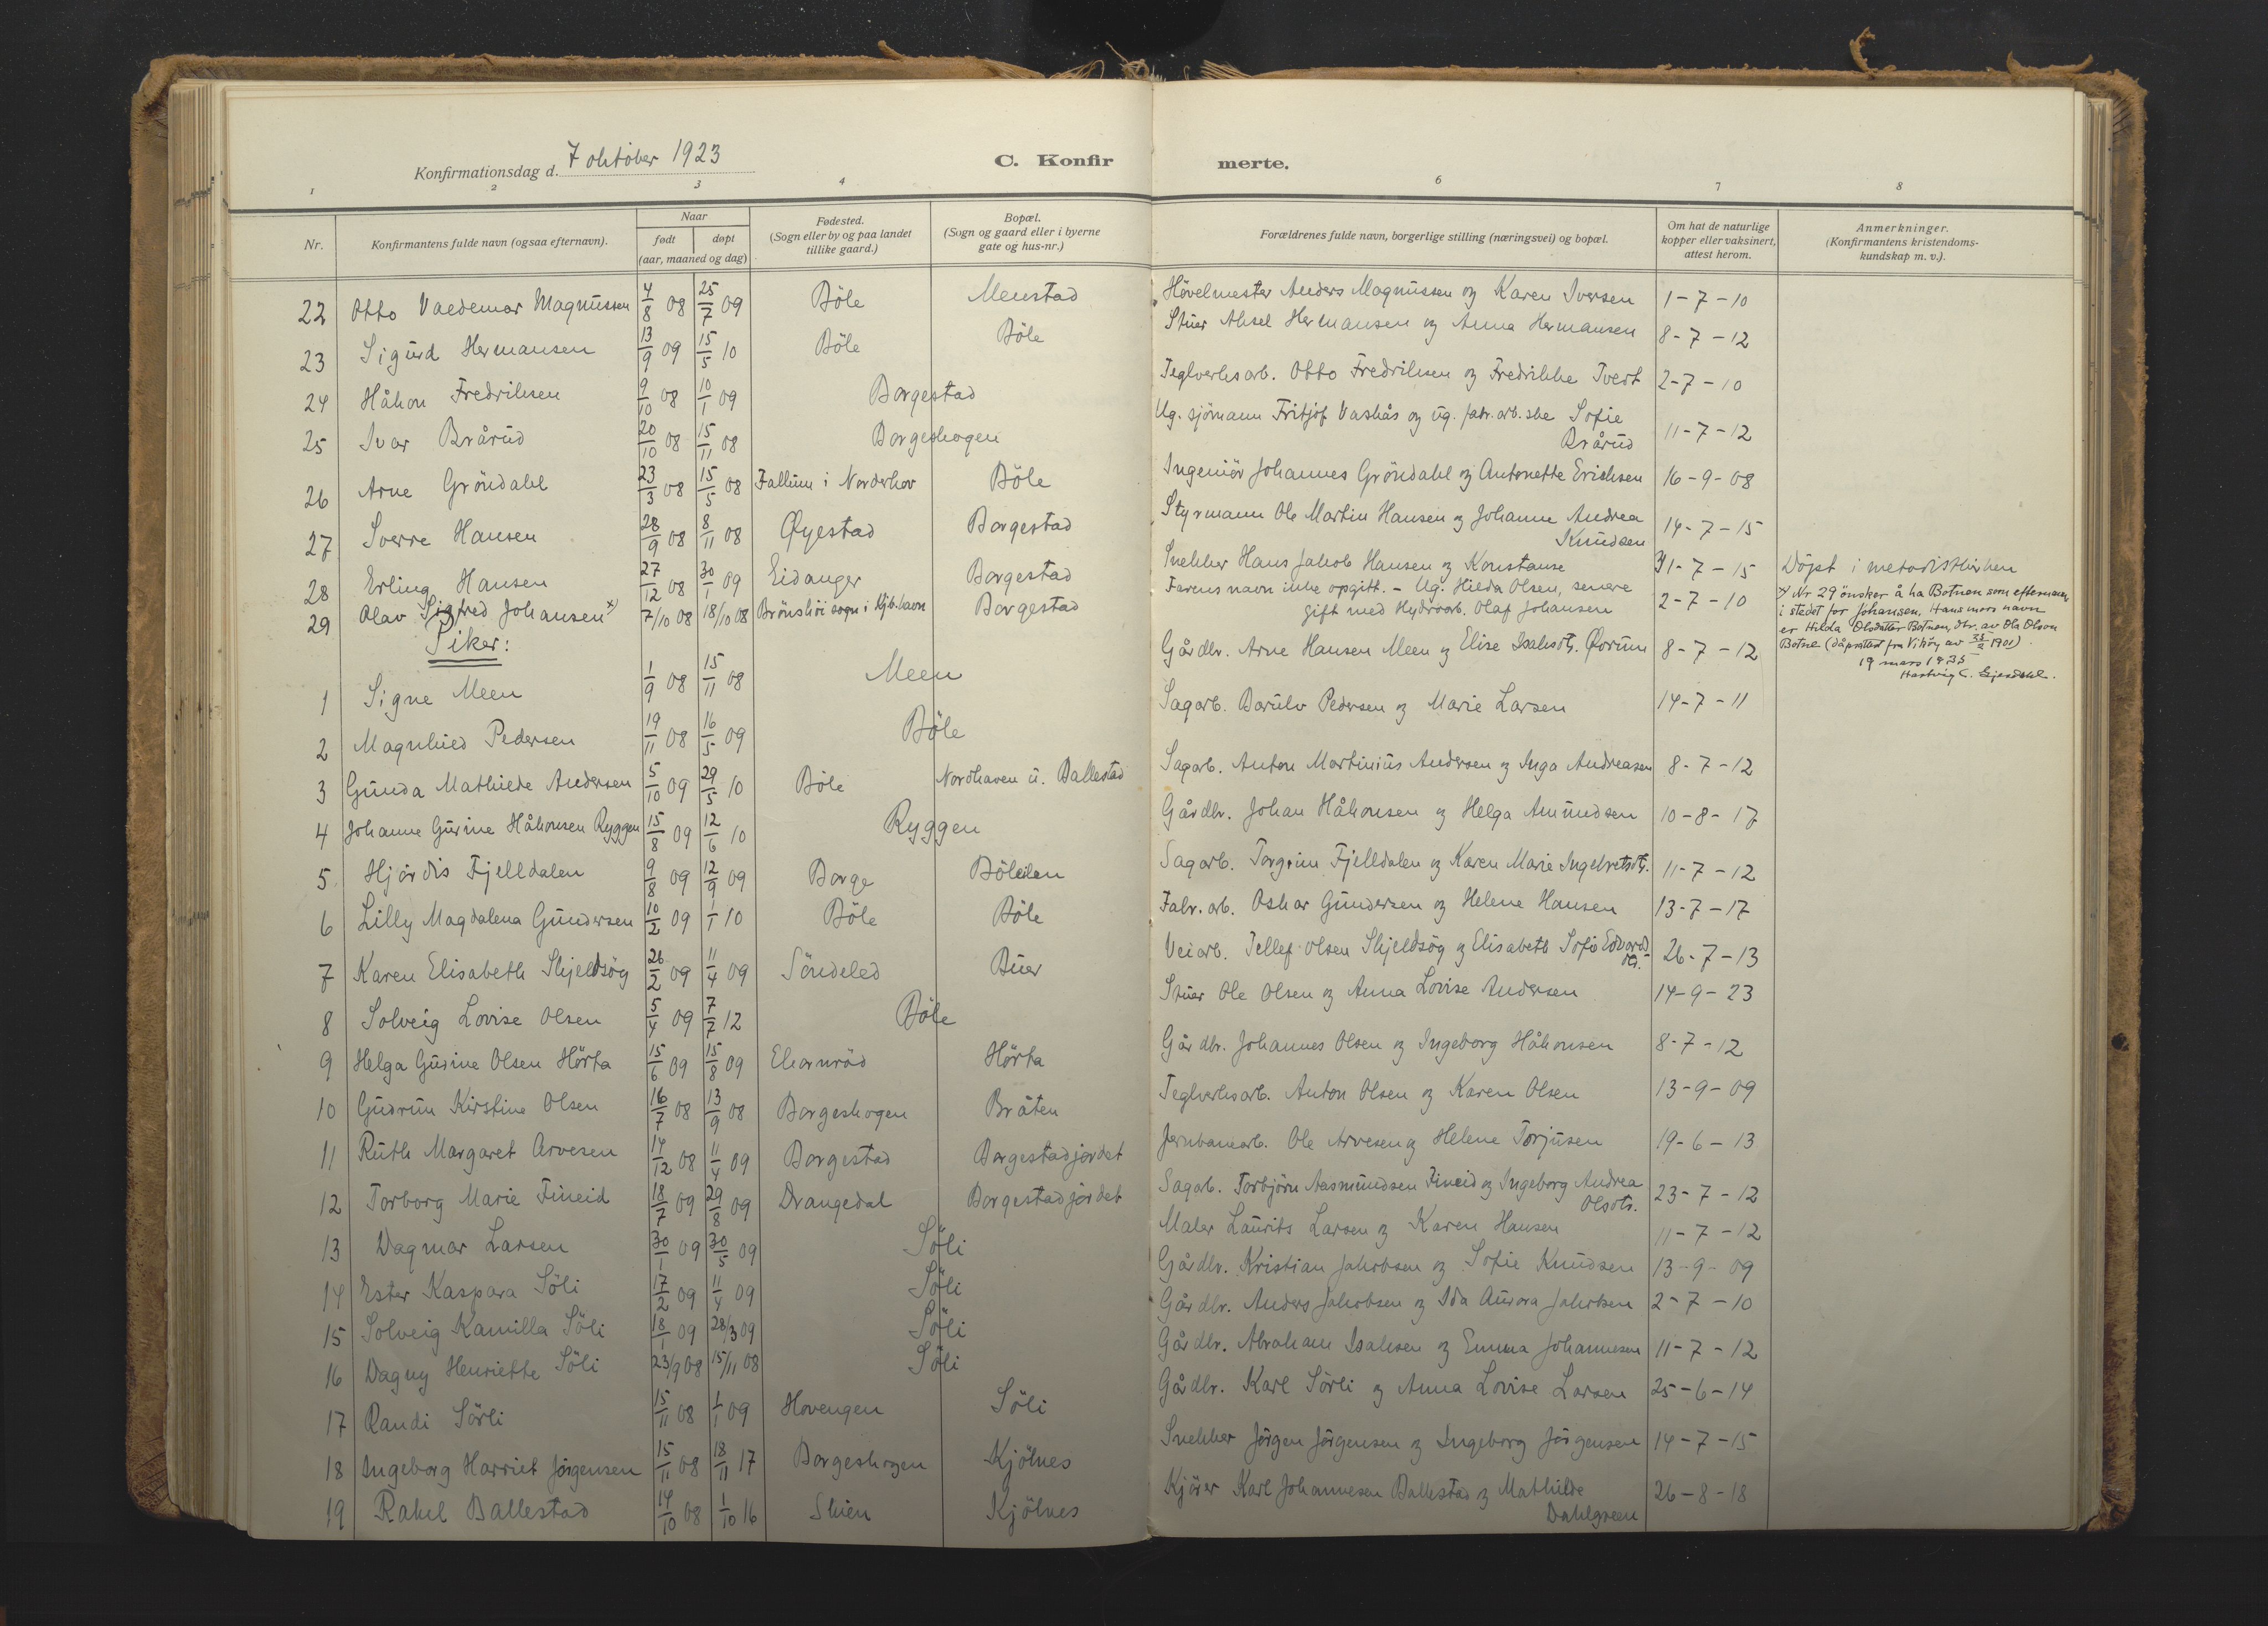 Konfirmationsdag d. 7 oktober 1923
C. Konfirmerte.
1 2 3 4 6 7 8
Nr.
Konfirmantens fulde navn (ogsaa efternavn).
Naar
født døpt
(aar, maaned og dag)
Fødested.
(Sogn eller by og paa landet
tillike gaard.)
Bopæl.
(Sogn og gaard eller i byerne
gate og hus-nr.)
Forældrenes fulde navn, borgerlige stilling (næringsvei) og bopæl.
Om hat de naturlige
kopper eller vaksinert,
attest herom.
Anmerkninger.
(Konfirmantens kristendoms-
kundskap m. v.).
22 Otto Valdemar Magnussen 4/8 08 25/7 09 Böle Menstad Hövelmester Anders Magnussen og Karen Iversen 1-7-10
23 Sigurd Hermansen 13/9 09 15/5 10 Böle Böle Stuer Aksel Hermansen og Anna Hermansen 8-7-12
24 Håkon Fredriksen 9/10 08 10/1 09 Borgestad Teglverksarb. Otto Fredriksen og Fredrikke Tvedt 2-7-10
25 Ivar Brårud 20/10 08 15/11 08 Borgeskogen Ug. sjömann Fritjof Vashås og ug. fabr. arb. ske Sofie
Brårud 11-7-12
26 Arne Gröndahl 23/3 08 15/5 08 Fallum i Norderhov Böle Ingeniör Johannes Gröndahl og Antonette Eriksen 16-9-08
27 Sverre Hansen 28/9 08 8/11 08 Øyestad Borgestad Styrmann Ole Martin Hansen og Johanne Andrea
Knudsen 14-7-15
28 Erling Hansen 27/12 08 30/1 09 Eidanger Borgestad Snekker Hans Jakob Hansen og Konstanse 31-7-15 Döpt i metodistkirken
29 Olav Sigfred Johansen x) 7/10 08 18/10 08 Brönshöi sogn i Kjb.havn Borgestad Farens navn ikke opgitt. - Ug. Hilda Olsen, senere
gift med Hydroarb. Olaf Johansen 2-7-10
x) Nr 29 ønsker å ha Botnen som efternavn
i stedet for Johansen. Hans mors navn
er Hilda Olsdatter Botnen, dtr. av Ola Olson
Botne (dåpsattest fra Vikör av 1901).
19 mars 1935
Hartvig C. Gjesdahl.
Piker:
1 Signe Meen 1/9 08 15/11 08 Meen Gårdbr. Arne Hansen Meen og Elise Isaksdtr. Øvrum 8-7-12
2 Magnhild Pedersen 19/11 08 16/5 09 Böle Sagarb. Barulv Pedersen og Marie Larsen 14-7-11
3 Gunda Mathilde Andersen 5/10 09 29/5 10 Böle Nordhaven u. Ballestad Sagarb. Anton Martinius Andersen og Inga Andreasen 8-7-12
4 Johanne Gurine Håkonsen Ryggen 15/8 09 12/6 10 Ryggen Gårdbr. Johan Håkonsen og Helga Amundsen 10-8-17
5 Hjördis Fjelldalen 9/8 09 12/9 09 Borge Böleilen Sagarb. Torgrim Fjelldalen og Karen Marie Ingebretsdtr. 11-7-12
6 Lilly Magdalena Gundersen 10/2 09 1/1 10 Böle Böle Fabr. arb. Oskar Gundersen og Helene Hansen 13-7-17
7 Karen Elisabeth Skjeldsög 26/2 09 11/4 09 Söndeled Buer Veiarb. Tellef Olsen Skjeldsög og Elisabeth Sofie Edvards-
dtr. 26-7-13
8 Solveig Lovise Olsen 5/4 09 7/7 12 Böle Stuer Ole Olsen og Anna Lovise Andersen 14-9-23
9 Helga Gurine Olsen Hörta 15/6 09 15/8 09 Ekornröd Hörta Gårdbr. Johannes Olsen og Ingeborg Håkonsen 8-7-12
10 Gudrun Kirstine Olsen 16/7 08 13/9 08 Borgeskogen Bråten Teglverksarb. Anton Olsen og Karen Olsen 13-9-09
11 Ruth Margaret Arvesen 14/12 08 11/4 09 Borgestad Borgestadjordet Jernbanearb. Ole Arvesen og Helene Torjusen 19-6-13
12 Torborg Marie Fineid 18/7 09 29/8 09 Drangedal Borgestadjordet Sagarb. Torbjörn Aasmundsen Fineid og Ingeborg Andrea
Olsdtr. 23-7-12
13 Dagmar Larsen 30/1 09 30/5 09 Söli Maler Laurits Larsen og Karen Hansen 11-7-12
14 Ester Kaspara Söli 17/2 09 11/4 09 Söli Gårdbr. Kristian Jakobsen og Sofie Knudsen 13-9-09
15 Solveig Kamilla Söli 18/1 09 28/3 09 Söli Gårdbr. Anders Jakobsen og Ida Aurora Jakobsen 2-7-10
16 Dagny Henriette Söli 23/9 08 15/11 08 Söli Gårdbr. Abraham Isaksen og Emma Johannesen 11-7-12
17 Randi Sörli 15/11 08 1/1 09 Hovengen Söli Gårdbr. Karl Sörli og Anna Lovise Larsen 25-6-14
18 Ingeborg Harriet Jörgensen 15/11 08 18/11 17 Borgeskogen Kjölnes Snekker Jörgen Jörgensen og Ingeborg Jörgensen 14-7-15
19 Rakel Ballestad 14/10 08 1/10 16 Skien Kjölnes Kjörer Karl Johannesen Ballestad og Mathilde
Dahlgreen 26-8-18